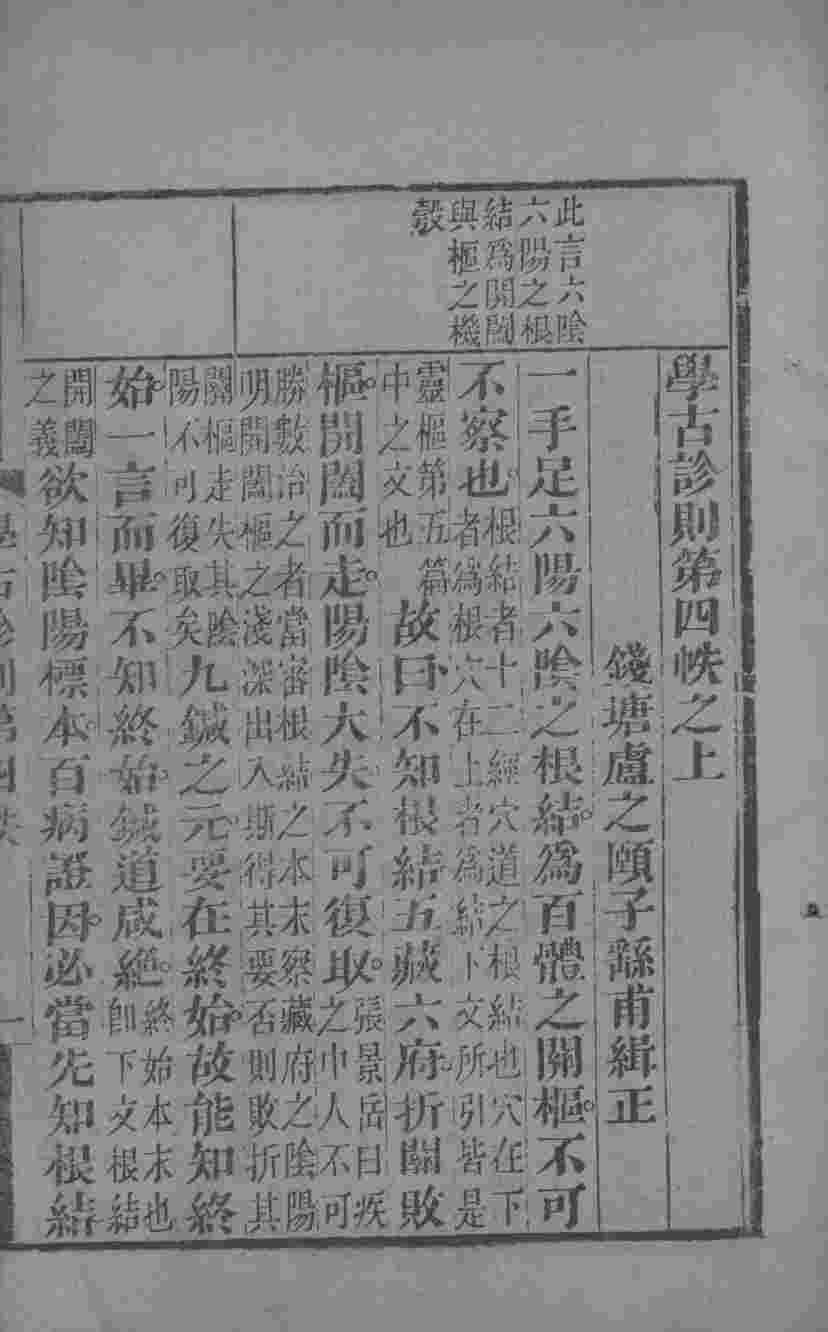 此言六陰
六陽之根
結爲開闔
與樞之機
彀
學古診則第四帙之上
錢塘盧之頤子繇甫緝正
一手足六陽六陰之根結。爲百體之關樞。不可
不察也。根結者十二經穴道之根結也穴在下
者爲根穴在上者爲結下文所引皆是
靈樞第五篇
中之文也
故曰不知根結五藏六府。折關敗
樞。開闔而走。陽陰大失。不可復取。張景岳曰疾
之中人不可
勝數治之者當審根結之本末察藏府之陰陽
明開闔樞之淺深出入斯得其要否則敗折其
關樞走失其陰
陽不可復取矣
九鍼之元。要在終始。故能知終
始。一言而畢。不知終始。鍼道咸絕。終始本末也
卽下文根結
開闔
之義
欲知陰陽標本。百病證因。必當先知根結
學古診則第四帙
一